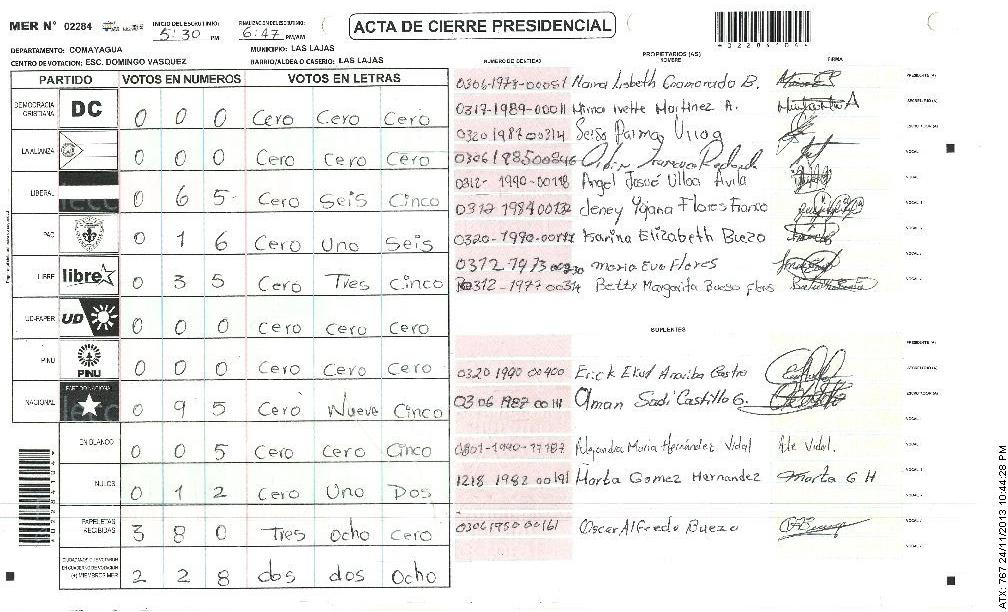 MER N° 02284
INICIO DEL ESCRUTINIO: 5:30 PM
FINALIZACION DEL ESCRUTINIO: 6:47 PM/AM
ACTA DE CIERRE PRESIDENCIAL
DEPARTAMENTO: COMAYAGUA
MUNICIPIO: LAS LAJAS
CENTRO DE VOTACION: ESC. DOMINGO VASQUEZ
BARRIO/ALDEA O CASERIO: LAS LAJAS
PARTIDO VOTOS EN NUMEROS VOTOS EN LETRAS
DEMOCRACIA CRISTIANA DC 0 0 0 Cero Cero Cero
LA ALIANZA 0 0 0 Cero Cero Cero
LIBERAL 0 6 5 Cero Seis Cinco
PAC 0 1 6 Cero Uno Seis
LIBRE libre 0 3 5 Cero Tres Cinco
UD-FAPER UD 0 0 0 Cero Cero Cero
PINU PINU 0 0 0 Cero Cero Cero
NACIONAL PARTIDO NACIONAL 0 9 5 Cero Nueve Cinco
EN BLANCO 0 0 5 Cero Cero Cinco
NULOS 0 1 2 Cero Uno Dos
PAPELETAS RECIBIDAS 3 8 0 Tres Ocho Cero
(+) MIEMBROS MER 2 2 8 dos dos Ocho
NUMERO DE IDENTIDAD PROPIETARIOS (AS) NOMBRE FIRMA
Lisbeth B. PRESIDENTE (A)
0317-1989-00011 Mirna Ivette Martinez A. SECRETARIO (A)
Palma ESCRUTADOR (A)
VOCAL
0312-1990-00118 Angel Josué Ulloa Avila VOCAL
0312 1984 00132 Jeney Yojana Flores Franco VOCAL
Karina Elizabeth Buezo VOCAL
Maria Eva Flores VOCAL
0312-1977-00314 Betty Margarita Bueso Flores VOCAL
SUPLENTES
PRESIDENTE (A)
0320 1990 00400 Erick Castro SECRETARIO (A)
0306 1987 Sadi Castillo G. ESCRUTADOR (A)
VOCAL
Alejandra Maria Hernández Vidal Ale Vidal. VOCAL
1218 1982 00191 Marta Gomez Hernandez Marta G H VOCAL
0306 1950 00161 Oscar Alfredo Buezo VOCAL
VOCAL
ATX: 767 24/11/2013 10:44:28 PM